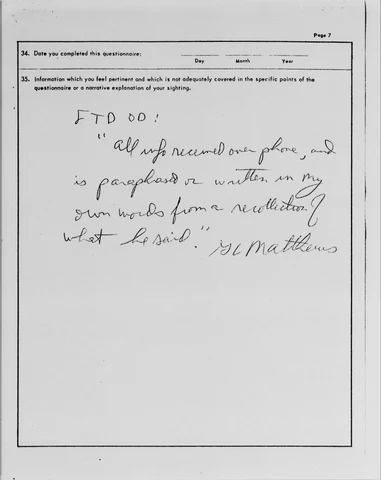 Page 7
34. Date you completed this questionnaire:
Day Month Year
35. Information which you feel pertinent and which is not adequately covered in the specific points of the
questionnaire or a narrative explanation of your sighting.
FTD OD:
"All info received over phone, and
is paraphased or written in my
own words from a recollection of
what he said." GC Matthews